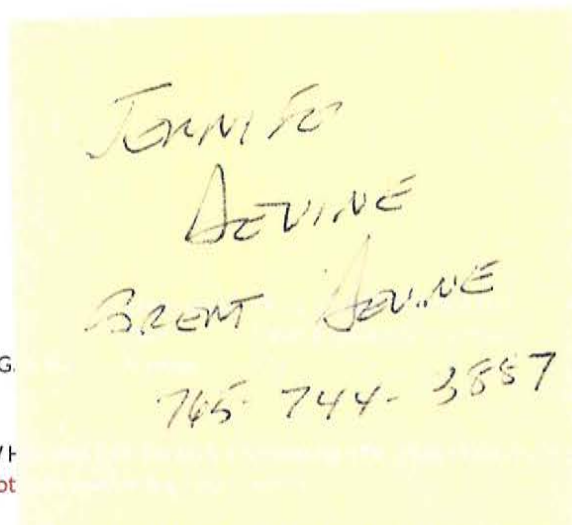 JENNIFER
DEVINE
BRENT DEVINE
G.
765-744-3887
ot